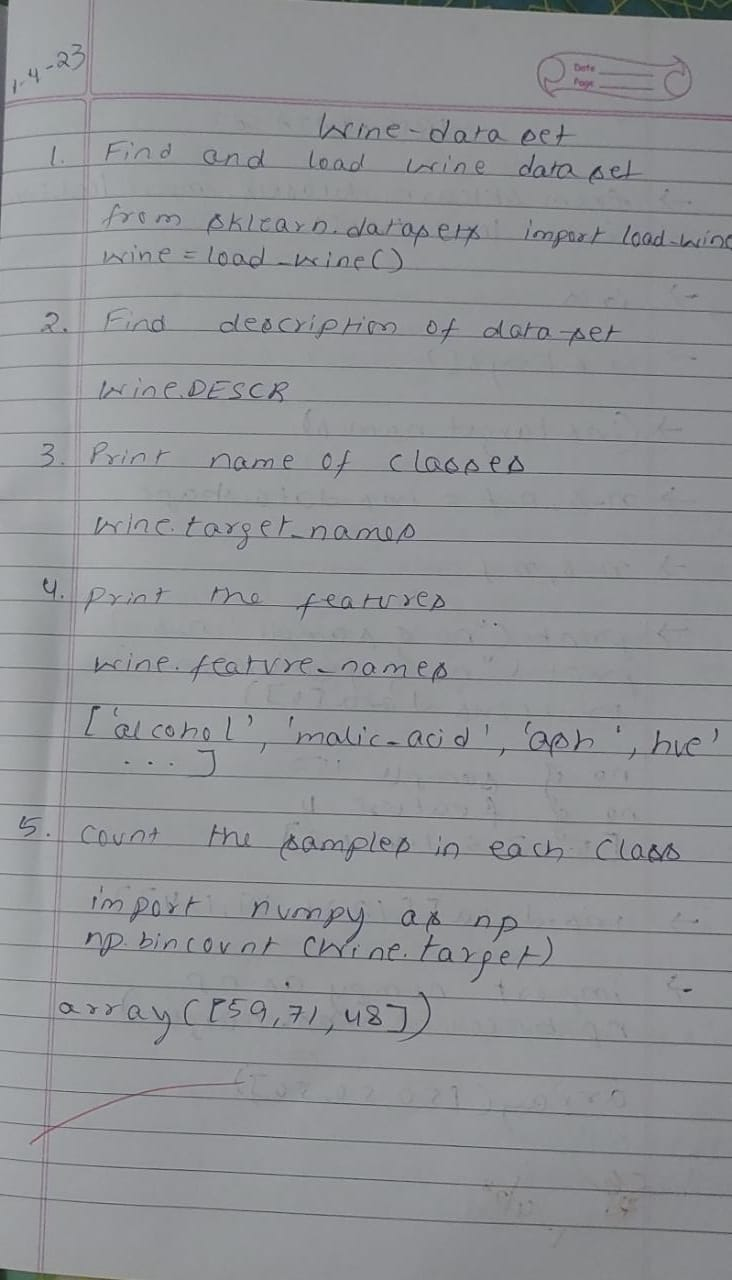 1-4-23
Date
Page
Wine-data set
1. Find and load wine data set
from sklearn.datasets import load-wine
wine = load_wine()
2. Find description of data-set
wine.DESCR
3. Print name of classes
wine.target_names
4. print the features
wine.feature_names
['alcohol', 'malic-acid', 'ash', hue'
... ]
5. count the samples in each class
import numpy as np
np.bincount (wine.target)
array([59,71,48])